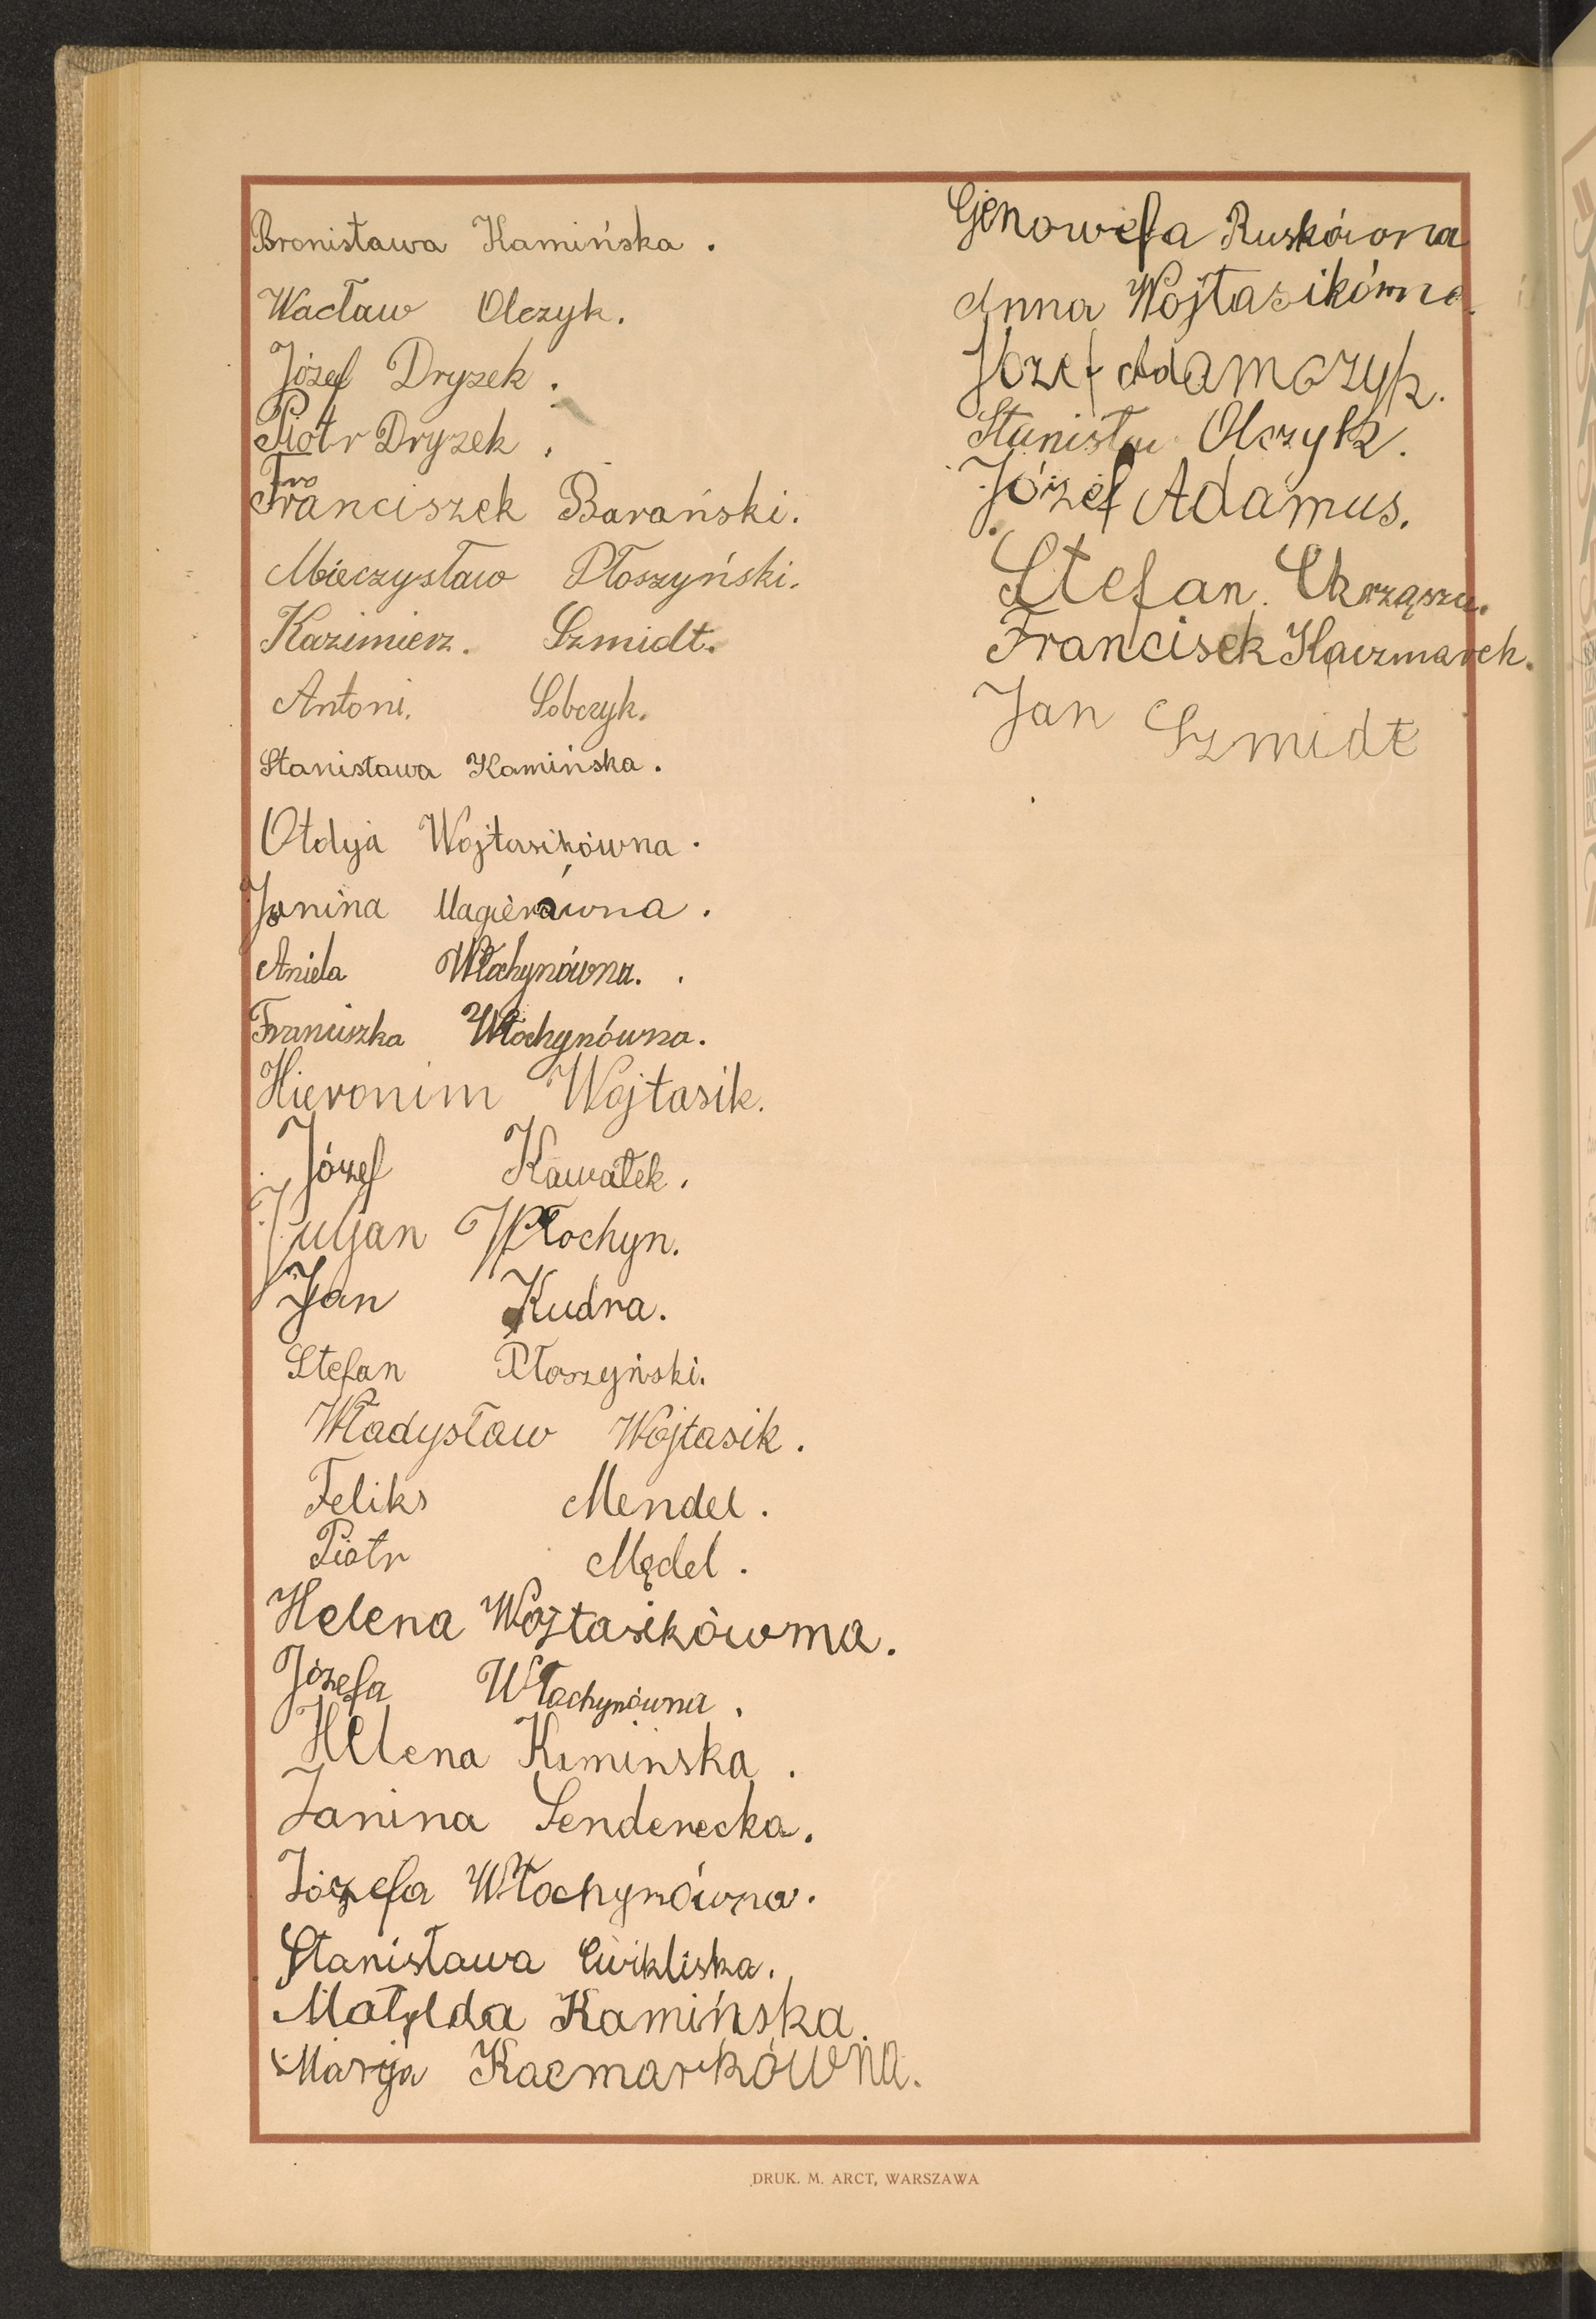 Bronisława Kamińska.
Wacław Olczyk.
Józef Dryzek.
Piotr Dryzek.
Franciszek Barański.
Mieczysław Płoszyński.
Kazimierz. Szmidt.
Antoni. Sobczyk.
Stanisława Kamińska.
Otdyja Wojtasikówna.
Janina Magierówna.
Aniela Włochynówna.
Franciszka Włochynówna.
Hieronim Wojtasik.
Józef Kawałek.
Juljan Włochyn.
Jan Kudra.
Stefan Płoszyński.
Władysław Wojtasik.
Feliks Mendel.
Piotr Mędel.
Helena Wojtasikówma.
Józefa Włochynówna.
Helena Kaminska.
Janina Senderecka.
Józefa Włochynówna.
Stanisława Cwikliska.
Matylda Kamińska.
Marija Kacmarkówna.
Genowefa Ruskówna
Anna Wojtasikówna.
Józef Adamczyk.
Stanisław Olczyk.
Józef Adamus.
Stefan.
Francisek Kaczmarek.
Jan Szmidt
DRUK. M. ARCT, WARSZAWA